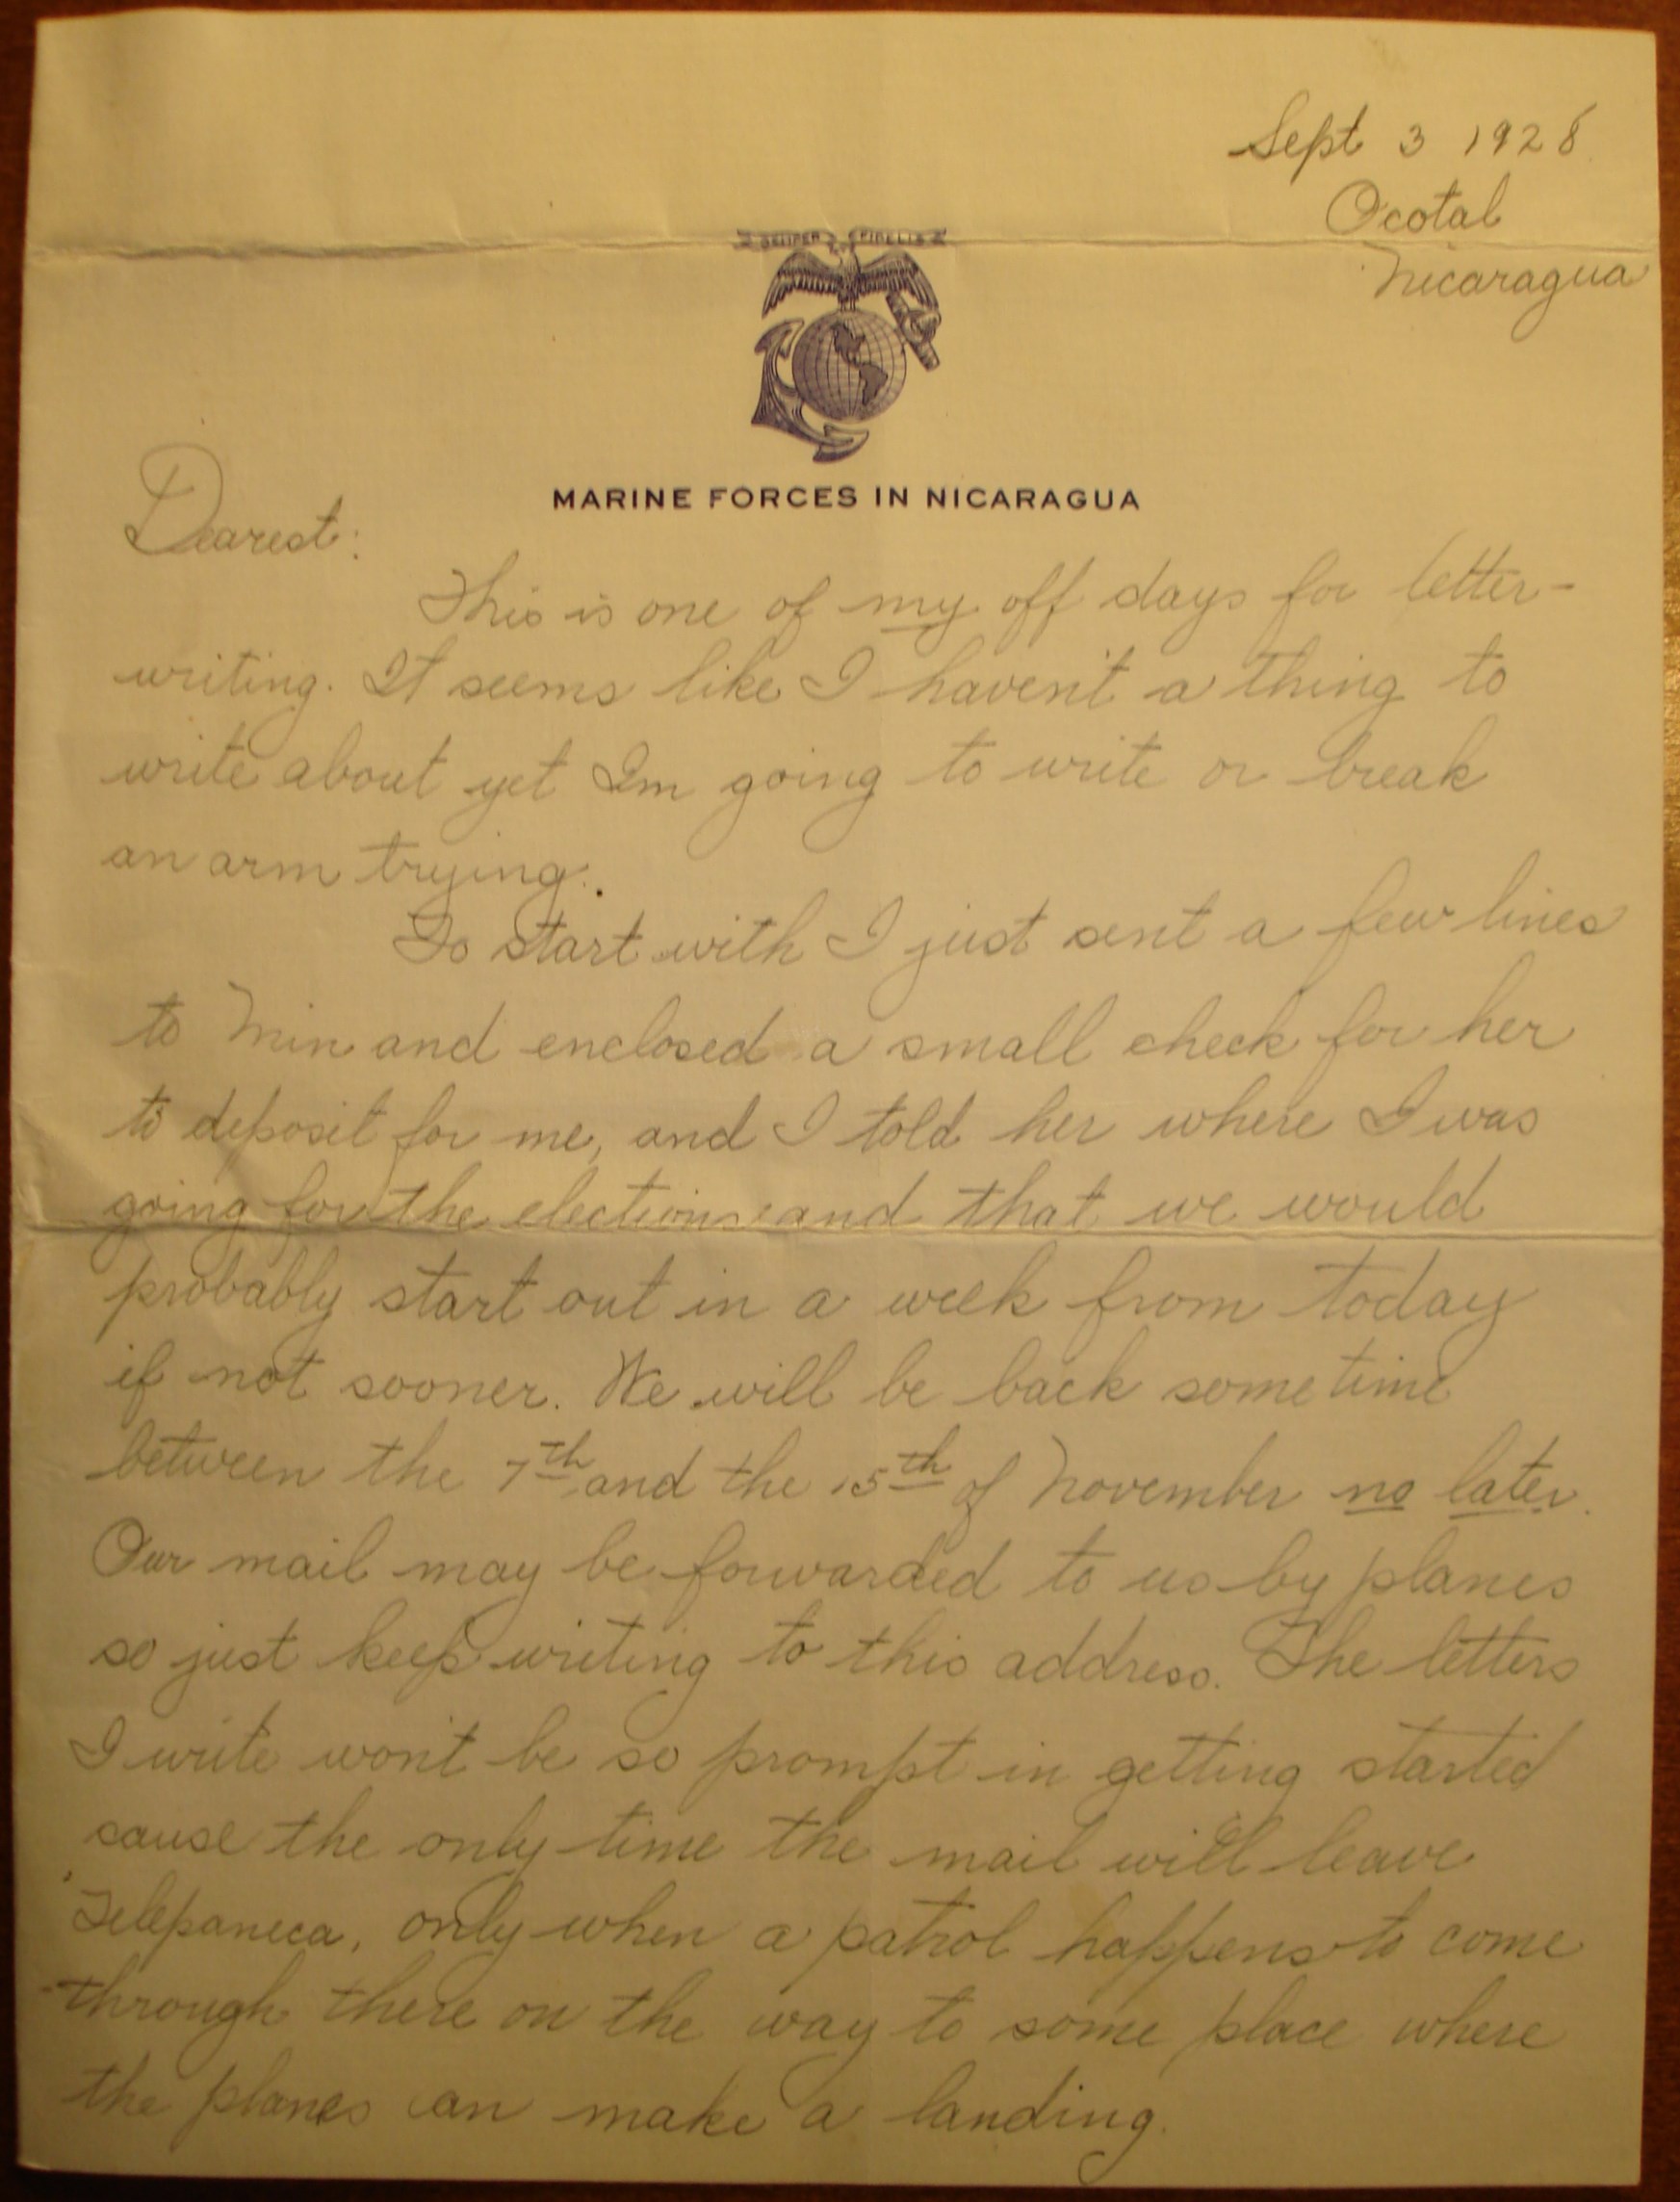 Sept 3 1928
Ocotal
Nicaragua
SEMPER FIDELIS
MARINE FORCES IN NICARAGUA
Dearest:
This is one of my off days for letter-
writing. It seems like I haven't a thing to
write about yet Im going to write or break
an arm trying.
To start with I just sent a few lines
to Min and enclosed a small check for her
to deposit for me, and I told her where I was
going for the elections and that we would
probably start out in a week from today
if not sooner. We will be back sometime
between the 7th and the 15th of November no later.
Our mail may be forwarded to us by planes
so just keep writing to this address. The letters
I write won't be so prompt in getting started
cause the only time the mail will leave
Telepaneca, only when a patrol happens to come
through there on the way to some place where
the planes can make a landing.